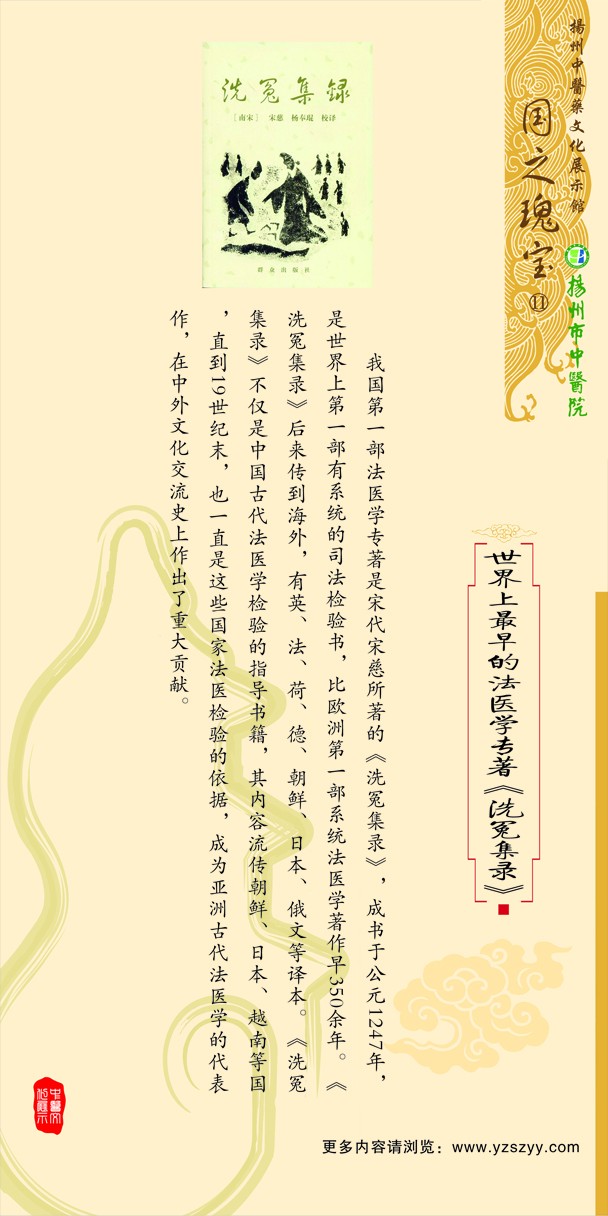 揚州中醫藥文化展示館
国之瑰宝⑪
揚州市中醫院
洗冤集録
［南宋］ 宋慈 杨奉琨 校译
群众出版社
世界上最早的法医学专著《洗冤集录》
我国第一部法医学专著是宋代宋慈所著的《洗冤集录》，成书于公元1247年，
是世界上第一部有系统的司法检验书，比欧洲第一部系统法医学著作早350余年。《
洗冤集录》后来传到海外，有英、法、荷、德、朝鲜、日本、俄文等译本。《洗冤
集录》不仅是中国古代法医学检验的指导书籍，其内容流传朝鲜、日本、越南等国
，直到19世纪末，也一直是这些国家法医检验的依据，成为亚洲古代法医学的代表
作，在中外文化交流史上作出了重大贡献。
更多内容请浏览：www.yzszyy.com